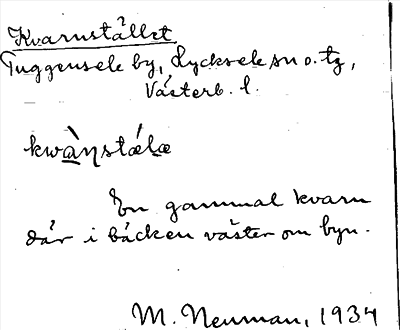 Kvarnstället
Tuggensele by, Lycksele sn o. tg,
Västerb. l.
kwàηstǽlæ
En gammal kvarn
där i bäcken väster om byn.
M. Neuman, 1934